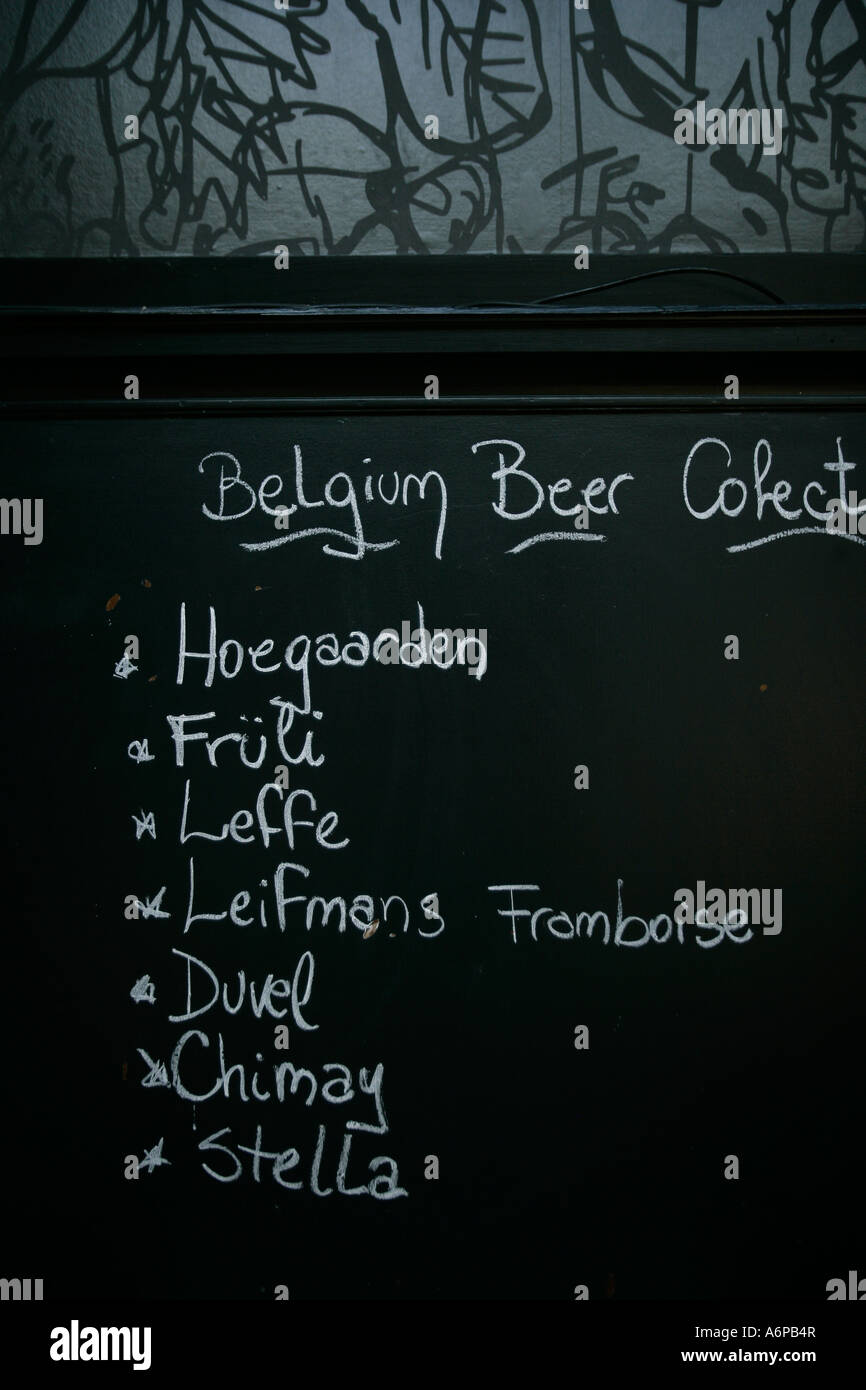 Belgium Beer Colect
* Hoegaarden
* Früli
* Leffe
* Leifmans Framboise
* Duvel
* Chimay
* Stella
alamy
Image ID: A6PB4R
www.alamy.com